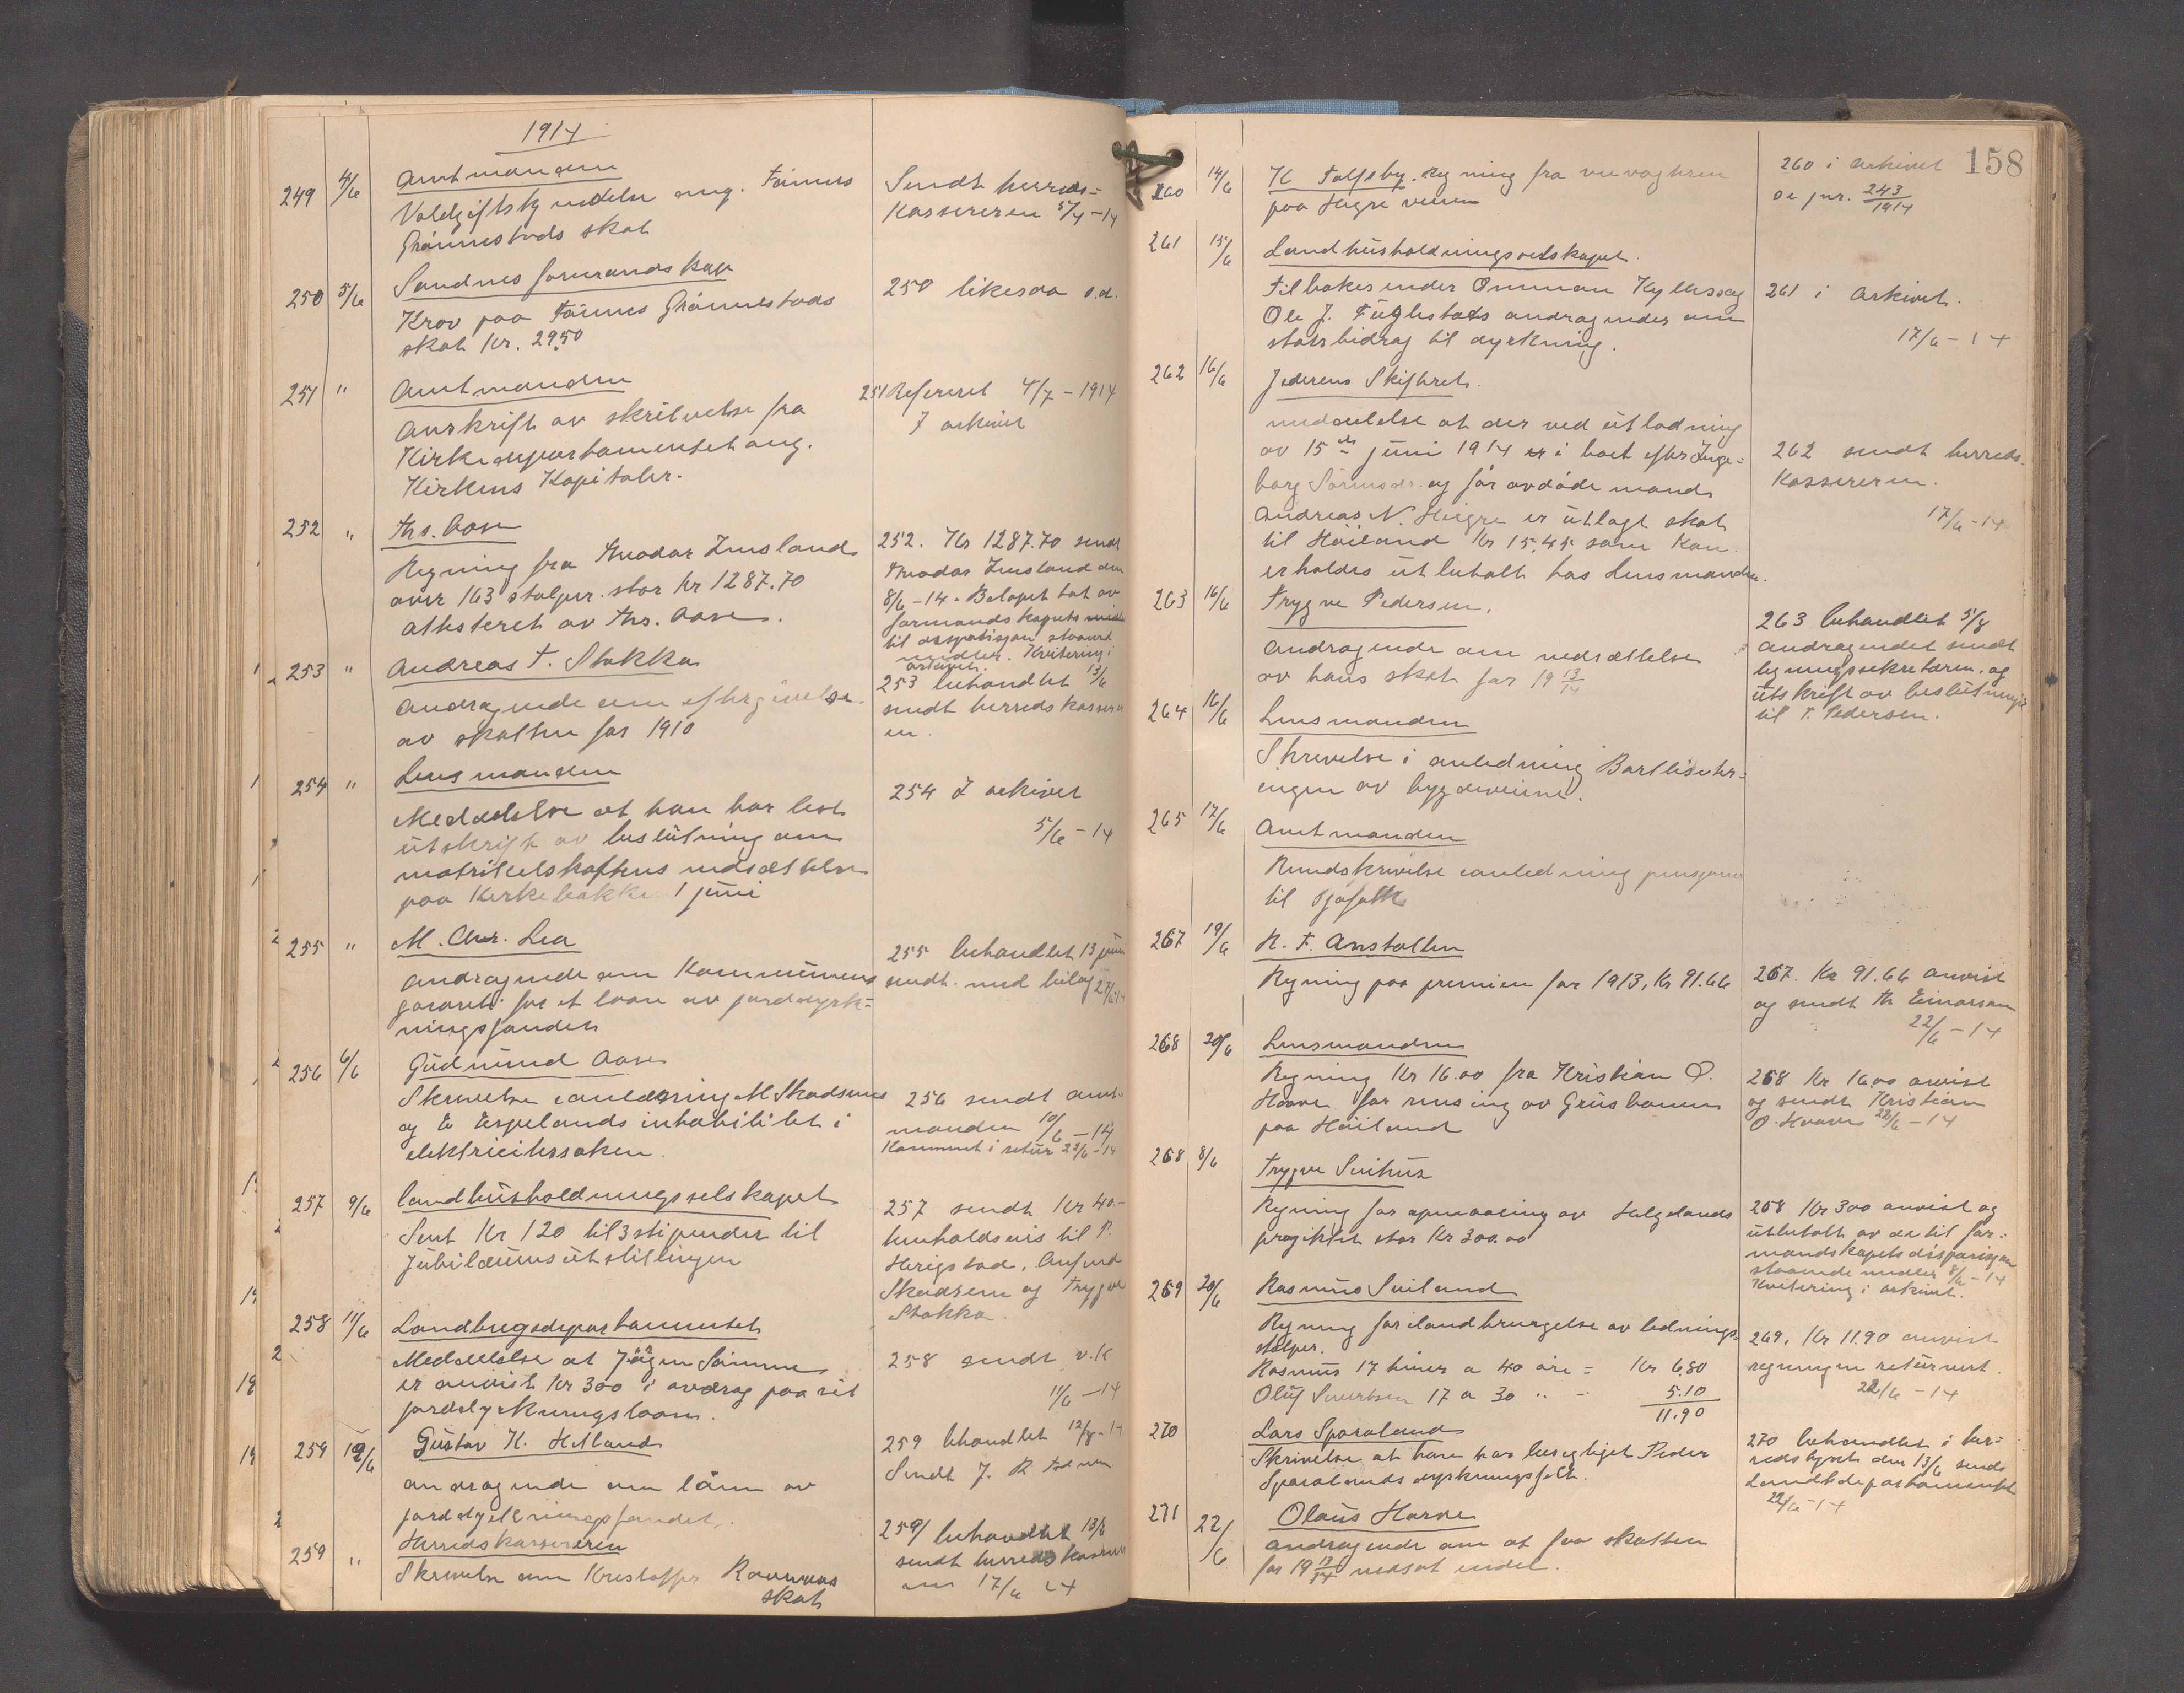 1914
249 4/6 Amtmanden
Voldgiftskjendelse ang. Tönnes
Grönnestads skat
Sendt herreds-
kassereren 5/7-14
250 5/6 Sandnes formandskap
Krav paa Tönnes Grönnestads
skat Kr. 29.50
250 likesaa s.d.
251 " Amtmanden
Avskrift av skrivelse fra
Kirkedepartementet ang.
Kirkens Kapitaler.
251 Refereret 4/7-1914
I arkivet
252 " Ths. Aase
Regning fra Theodor Imsland
over 163 stolper stor kr 1287.70
attesteret av Ths. Aase.
252. Kr 1287.70 sendt
Theodor Imsland den
8/6-14. Beløpet tat av
formandskapets midler
til disposisjon staaende
midler. Kvitering i
arkivet.
253 " Andreas T. Stokka
Andragende om eftergivelse
av skatten for 1910
253 behandlet 13/6
sendt herredskasserer
en.
254 " Lensmanden
Meddelelse at han har lest
utskrift av beslutning om
matrikelskattens nedsættelse
paa Kirkebakke 1 juni
254 I arkivet
5/6-14
255 " M. Chr. Lea
Andragende om Kommunens
garanti for et laan av jorddyrk-
ningsfondet
255 behandlet 13 juni
sendt med bilag 27/6 14
256 6/6 Gudmund Aase
Skrivelse i anledning M Skadsems
og E Espelands inhabilitet i
elektricitetssaken.
256 sendt amt-
manden 10/6-14
Kommet i retur 22/6-14
257 9/6 Landhusholdningsselskapet
Sent Kr 120 til 3 stipender til
Jubilæumsutstillingen
257 sendt Kr 40.-
henholdsvis til P.
Herigstad, Anfind
Skadsem og Trygve
Stokka.
258 11/6 Landbrugsdepartementet
Meddelelse at Jörgen Sömme
er anvist Kr 300 i avdrag paa sit
jorddyrkningslaan.
258 sendt v.k
11/6-14
259 12/6 Gustav K. Helland
andragende om lån av
jorddyrkningsfondet.
259 behandlet 12/8-14
Sendt J. R
259 " Herredskassereren
Skrivelse om Kristoffer Rannunas
skat
259/ behandlet 13/6
sendt herredskasserer
en 17/6 14
158
260 14/6 K Folfsby. Regning fra veivogteren
paa Høgre veien
260 i arkivet
se jnr. 243/1914
261 15/6 Landhusholdningsselskapet.
Tilbakesender Ommun Kylles og
Ole J. Fuglestads andragender om
statsbidrag til dyrkning.
261 i Arkivet.
17/6-14
262 16/6 Jæderens Skifteret.
meddelelse at der ved utlodning
av 15de juni 1914 er i boet efter Inge-
borg Sörensdr. og før avdöde mand
Andreas N. Høigre er utlagt skat
til Höiland Kr 15.45 som kan
erholdes utbetalt hos Lensmanden.
262 sendt herreds-
Kassereren.
17/6-14
263 16/6 Trygve Pedersen.
Andragende om nedsættelse
av hans skat for 19 13/14
263 behandlet 5/8
andragendet sendt
ligningssekretæren og
utskrift av beslutningen
til T. Pedersen.
264 16/6 Lensmanden
Skrivelse i anledning Bortliciter-
ingen av bygdeveiene.
265 17/6 Amtmanden
Rundskrivelse i anledning pensjoner
til sjøfolk
267 19/6 R. T. Anstalten
Regning paa premien for 1913, Kr 91.66
267. Kr 91.66 anvist
og sendt Th Einarsen
22/6-14
268 20/6 Lensmanden
Regning Kr 16.00 fra Kristian O.
Haave for rensing av Grusbanen
paa Höiland
268 Kr 16.00 anvist
og sendt Kristian
O. Haave 22/6-14
268 8/6 Trygve Svihus
Regning for opmaaling av Helgelands
projektet stor Kr 300.00
268 Kr 300 anvist og
utbetalt av de til for-
mandskapets disposisjon
staaende midler 8/6-14
Kvitering i arkivet.
269 20/6 Rasmus Sviland
Regning for ilandbringelse av lednings-
stolper.
Rasmus 17 timer a 40 øre = Kr 6.80
Oluf Sivertsen 17 a 30 " - 5.10
11.90
269. Kr 11.90 anvist
regningen returnert.
22/6-14
270 Lars Sporaland
Skrivelse at han har besigtiget Peder
Sporalands dyrkningsfelt.
270 behandlet i her-
redstyret den 13/6 sendt
Landtdepartementet
22/6-14
271 22/6 Olaus Harve
andragende om at faa skatten
for 19 13/14 nedsat endel.